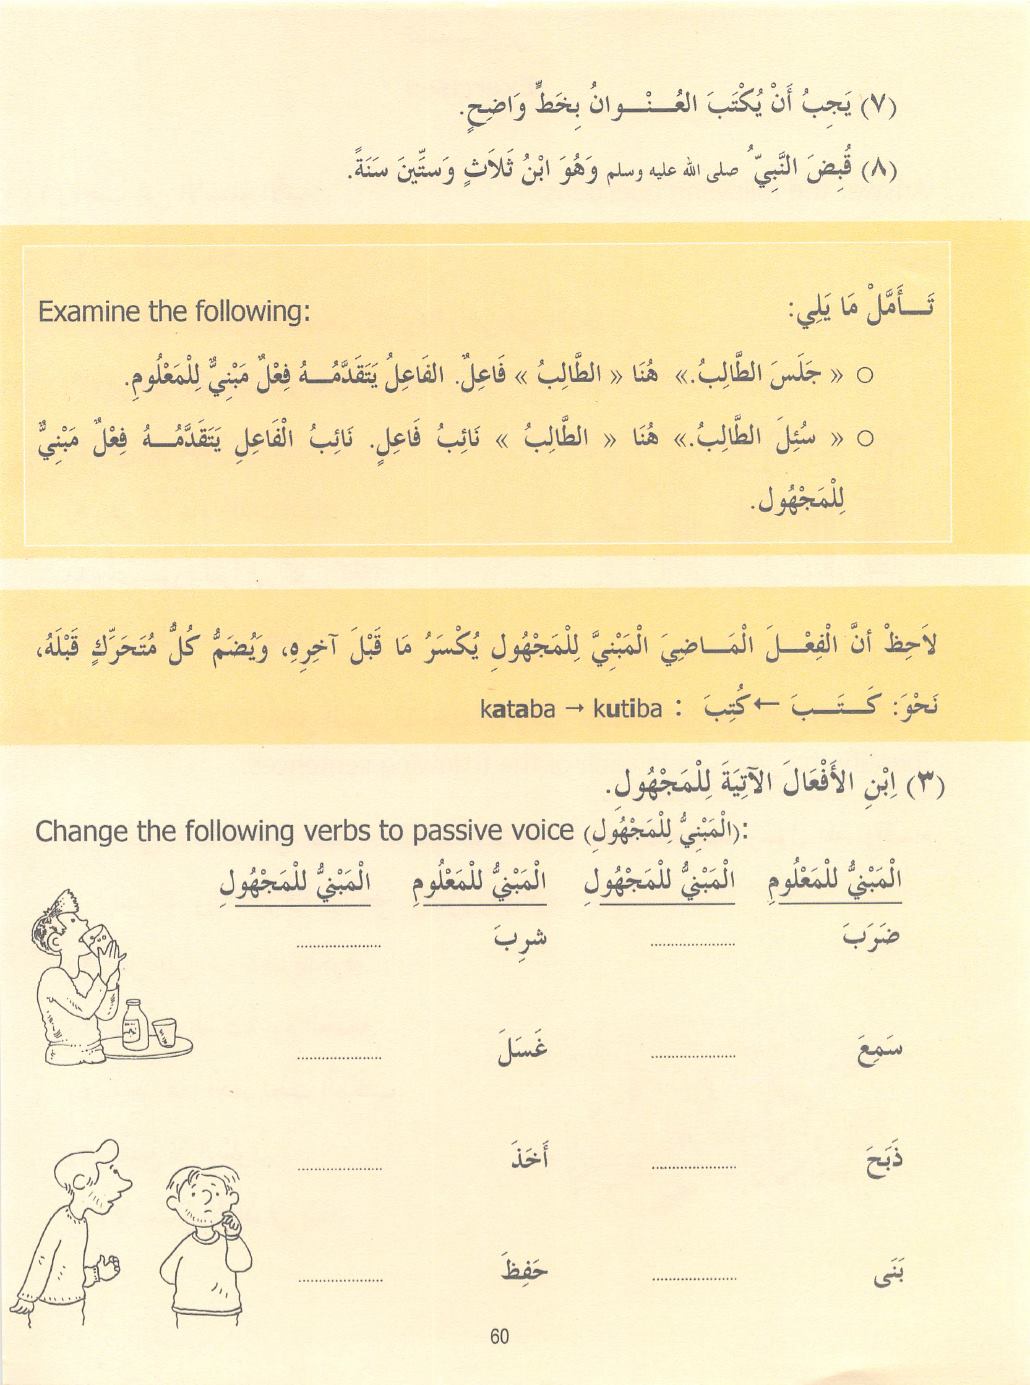 (٧) يَجِبُ أَنْ يُكْتَبَ العُـــنْـــوانُ بِخَطٍّ وَاضِحٍ.
(٨) قُبِضَ النَّبِيّ ُ صلى الله عليه وسلم وَهُوَ ابْنُ ثَلاَثٍ وَسِتِّينَ سَنَةً.
تَــأَمَّلْ مَا يَلِي: Examine the following:
○ « جَلَسَ الطَّالِبُ.» هُنَا « الطَّالِبُ » فَاعِلٌ. الفَاعِلُ يَتَقَدَّمُــهُ فِعْلٌ مَبْنِيٌّ لِلْمَعْلُومِ.
○ « سُئِلَ الطَّالِبُ.» هُنَا « الطَّالِبُ » نَائِبُ فَاعِلٍ. نَائِبُ الْفَاعِلِ يَتَقَدَّمُــهُ فِعْلٌ مَبْنِيٌّ
لِلْمَجْهُولِ.
لاَحِظْ أنَّ الْفِعْـــلَ الْمَــاضِيَ الْمَبْنِيَّ لِلْمَجْهُولِ يُكْسَرُ مَا قَبْلَ آخِرِهِ، وَيُضَمُّ كُلُّ مُتَحَرِّكٍ قَبْلَهُ،
نَحْوَ: كَـــتَـــبَ ← كُتِبَ : kataba → kutiba
(٣) اِبْنِ الأَفْعَالَ الآتِيَةَ لِلْمَجْهُولِ.
Change the following verbs to passive voice (الْمَبْنِيُّ لِلْمَجْهُولِ):
الْمَبْنِيُّ للْمَعْلُومِ الْمَبْنِيُّ للْمَجْهُولِ الْمَبْنِيُّ للْمَعْلُومِ الْمَبْنِيُّ للْمَجْهُولِ
ضَرَبَ .................... شرِبَ ....................
سَمِعَ .................... غَسَلَ ....................
ذَبَحَ .................... أَخَذَ ....................
بَنَى .................... حَفِظَ ....................
60